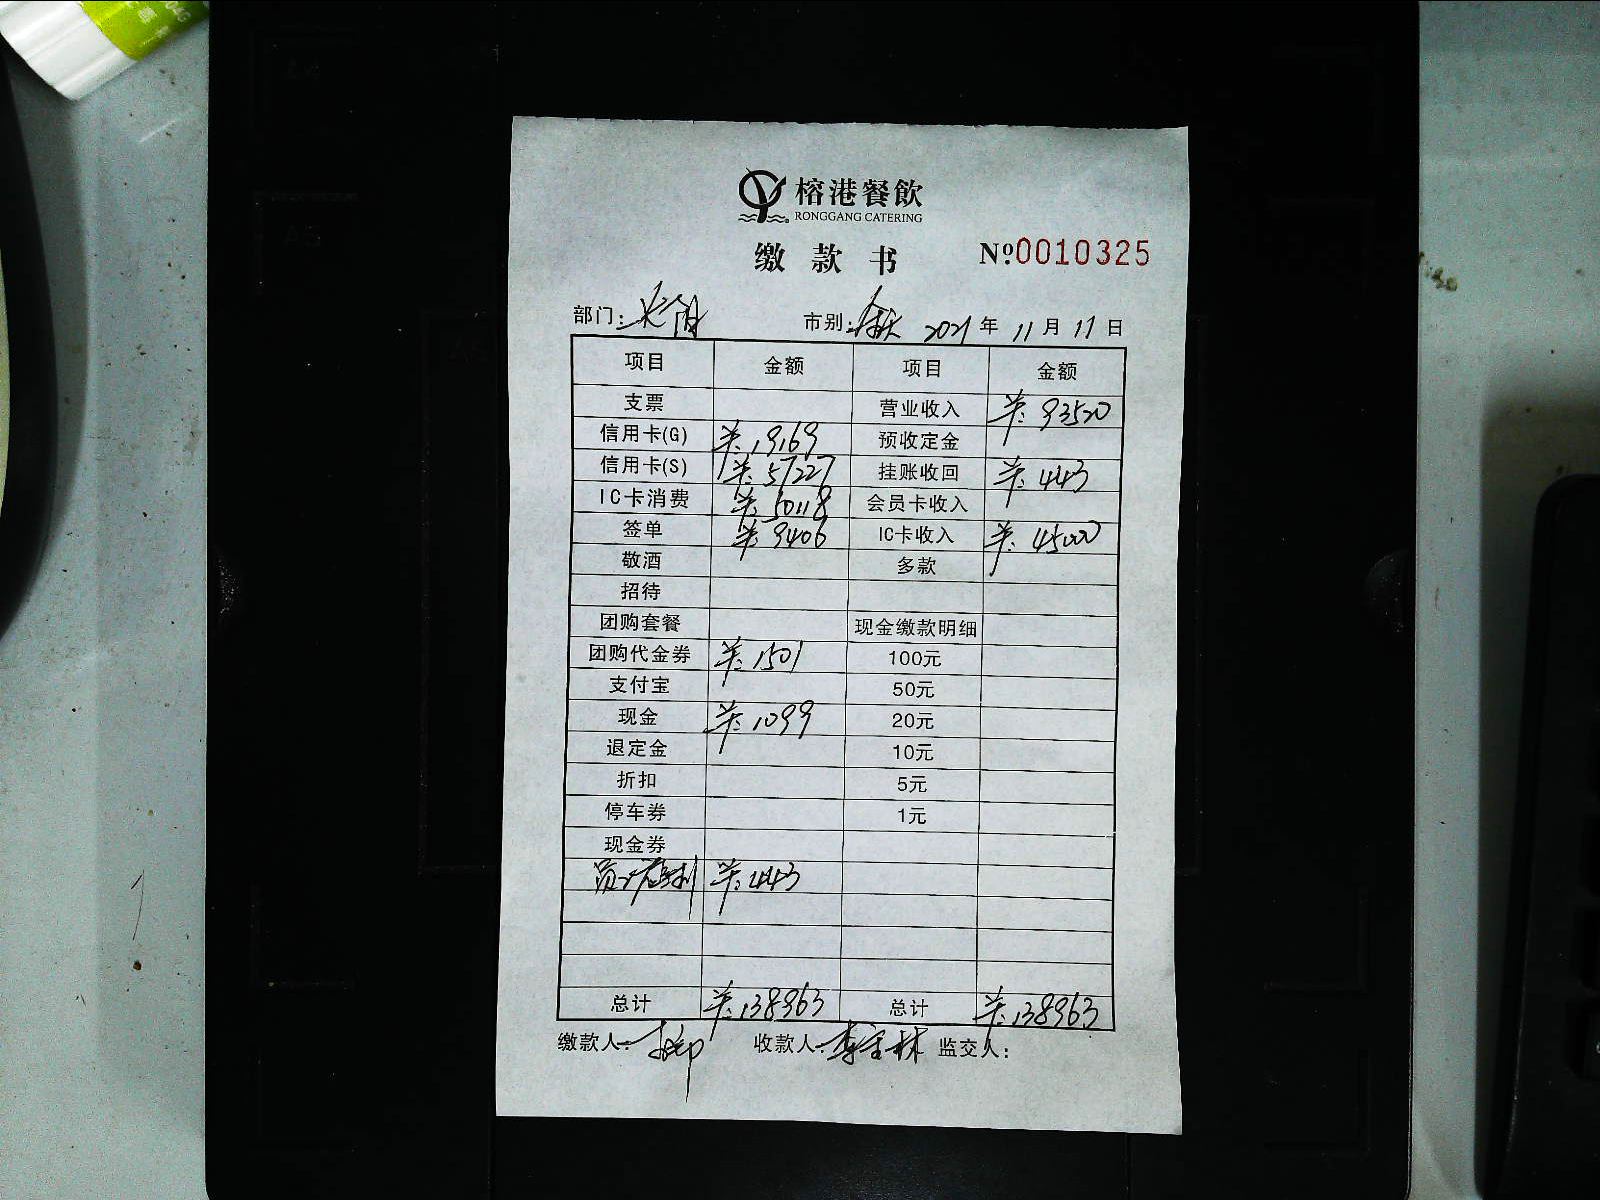 榕港餐飲
RONGGANG CATERING
缴款书 Nº:0010325
部门: 市别:全天 2021年11月11日
项目 金额 项目 金额
支票 营业收入 ¥:93520
信用卡(G) ¥:19169 预收定金
信用卡(S) ¥:57227 挂账收回 ¥:443
IC卡消费 ¥:50118 会员卡收入
签单 ¥:9406 IC卡收入 ¥:45000
敬酒 多款
招待
团购套餐 现金缴款明细
团购代金券 ¥:1501 100元
支付宝 50元
现金 ¥:1099 20元
退定金 10元
折扣 5元
停车券 1元
现金券
员工福利 ¥:443
总计 ¥:138963 总计 ¥:138963
缴款人: 收款人: 监交人: